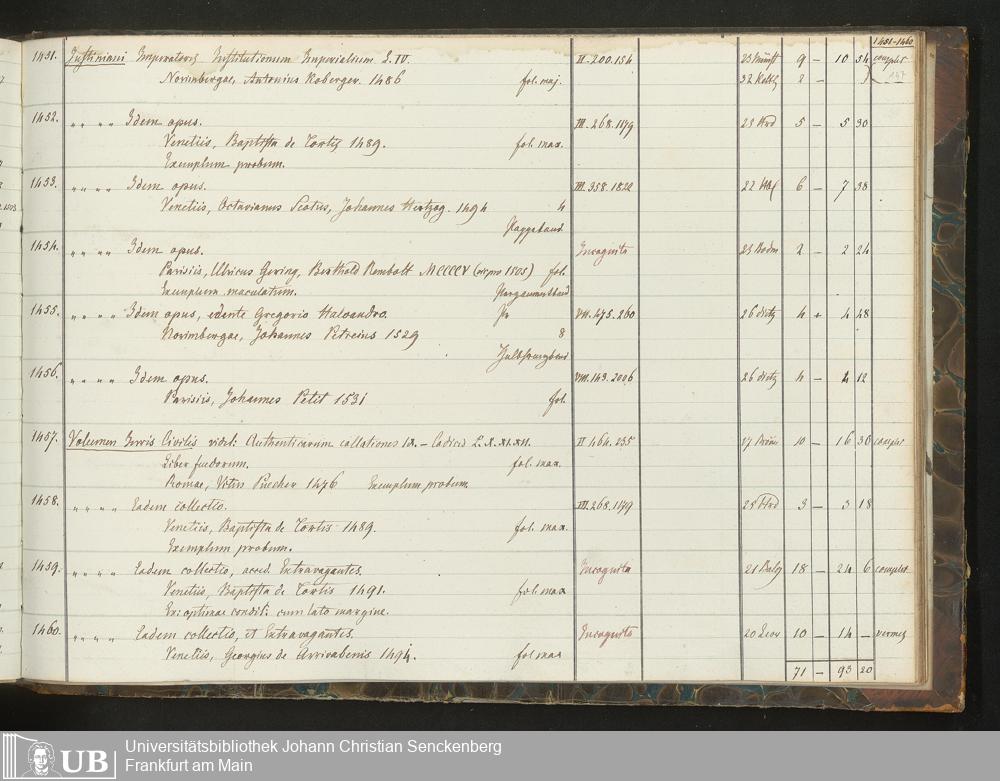 1451-1460
1451. Justiniani Imperatoris Institutionum Imperialium L. IV. II. 200.154 9 — 10 54 complet
Norimbergae, Antonius Koberger. 1486 fol. maj. 2 —
1452. " " " " Idem opus. III. 268.1179 5 — 5 30
Venetiis, Baptista de Tortis 1489. fol. max.
Exemplum probum.
1453. " " " " Idem opus. III. 358.1822 6 — 7 38
Venetiis, Octavianus Scotus, Johannes Hertzog. 1494 4
Pappeband
1454. " " " " Idem opus. Incognita 2 — 2 24
Parisiis, Ulricus Gering, Berthold Rembolt MCCCCV (sic pro 1505) fol.
Exemplum maculatum. Pergamentband
1455. " " " " Idem opus, edente Gregorio Haloandro. VII. 475.260 26 Dietz 4 + 4 48
Norimbergae, Johannes Petreius 1529 8
1456. " " " " Idem opus. VIII. 143.2006 26 Dietz 4 — 4 12
Parisiis, Johannes Petit 1531 fol.
1457. Volumen Juris Civilis videl: Authenticarum collationes IX. – Codicis L. X. XI. XII. II 464.235 10 — 16 36 complet
Liber feudorum. fol. max.
Romae, Vitus Puecher 1476 Exemplum probum
1458. " " " " Eadem collectio. III. 268.1179 3 — 3 18
Venetiis, Baptista de Tortis 1489. fol. max
Exemplum probum.
1459. " " " " Eadem collectio, acced. Extravagantes. Incognita 18 — 24 6 complet
Venetiis, Baptista de Tortis 1491. fol. max
Ex: optimae condit: cum lato margine.
1460. " " " " Eadem collectio, et Extravagantes. Incognita 10 — 14 —
Venetiis, Georgius de Arrivabenis 1494. fol max
71 — 93 20
UB
Universitätsbibliothek Johann Christian Senckenberg
Frankfurt am Main